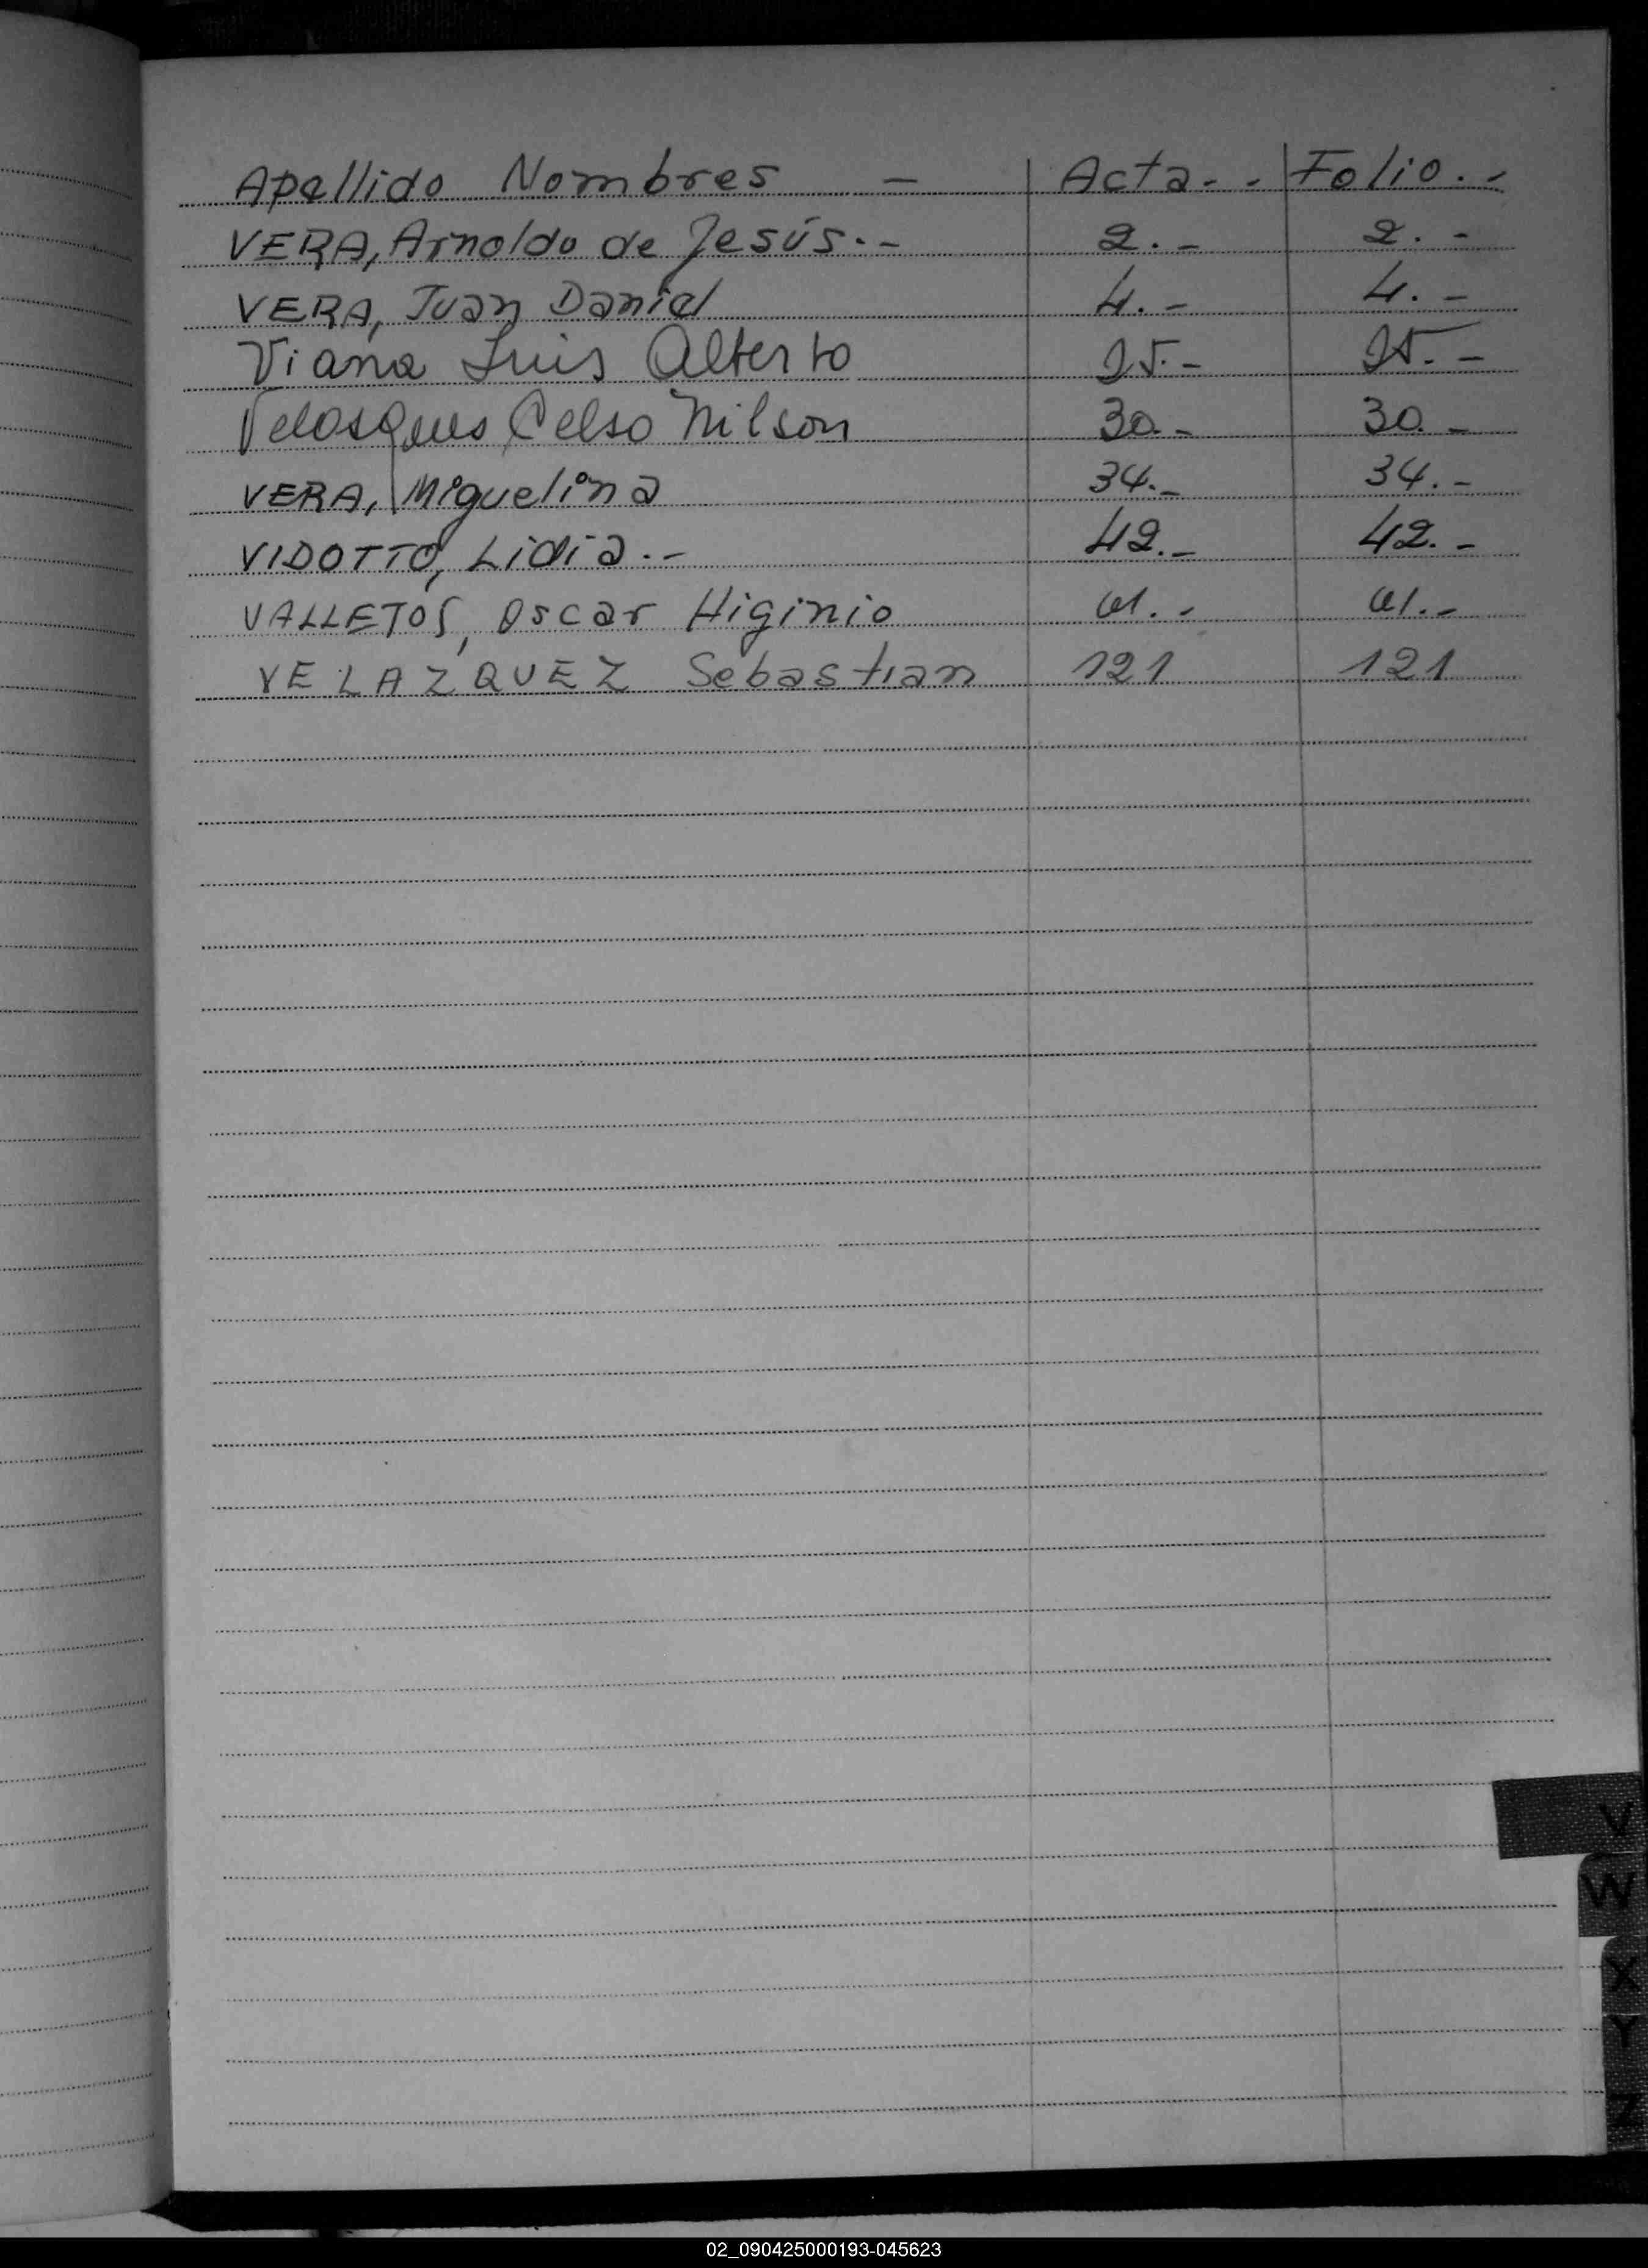 Apellido Nombres — Acta.- . Folio.-
VERA, Arnoldo de Jesús.- 2.- 2.-
VERA, Juan Daniel 4.- 4.-
Viana Luis Alberto 25.- 25.-
Velosques Celso Nilson 30.- 30.-
VERA, Miguelina 34.- 34.-
VIDOTTO, Lidia.- 42.- 42.-
VALLETOS, Oscar Higinio 61.- 61.-
VELAZQUEZ Sebastian 121 121
V
W
X
Y
Z
02_090425000193-045623